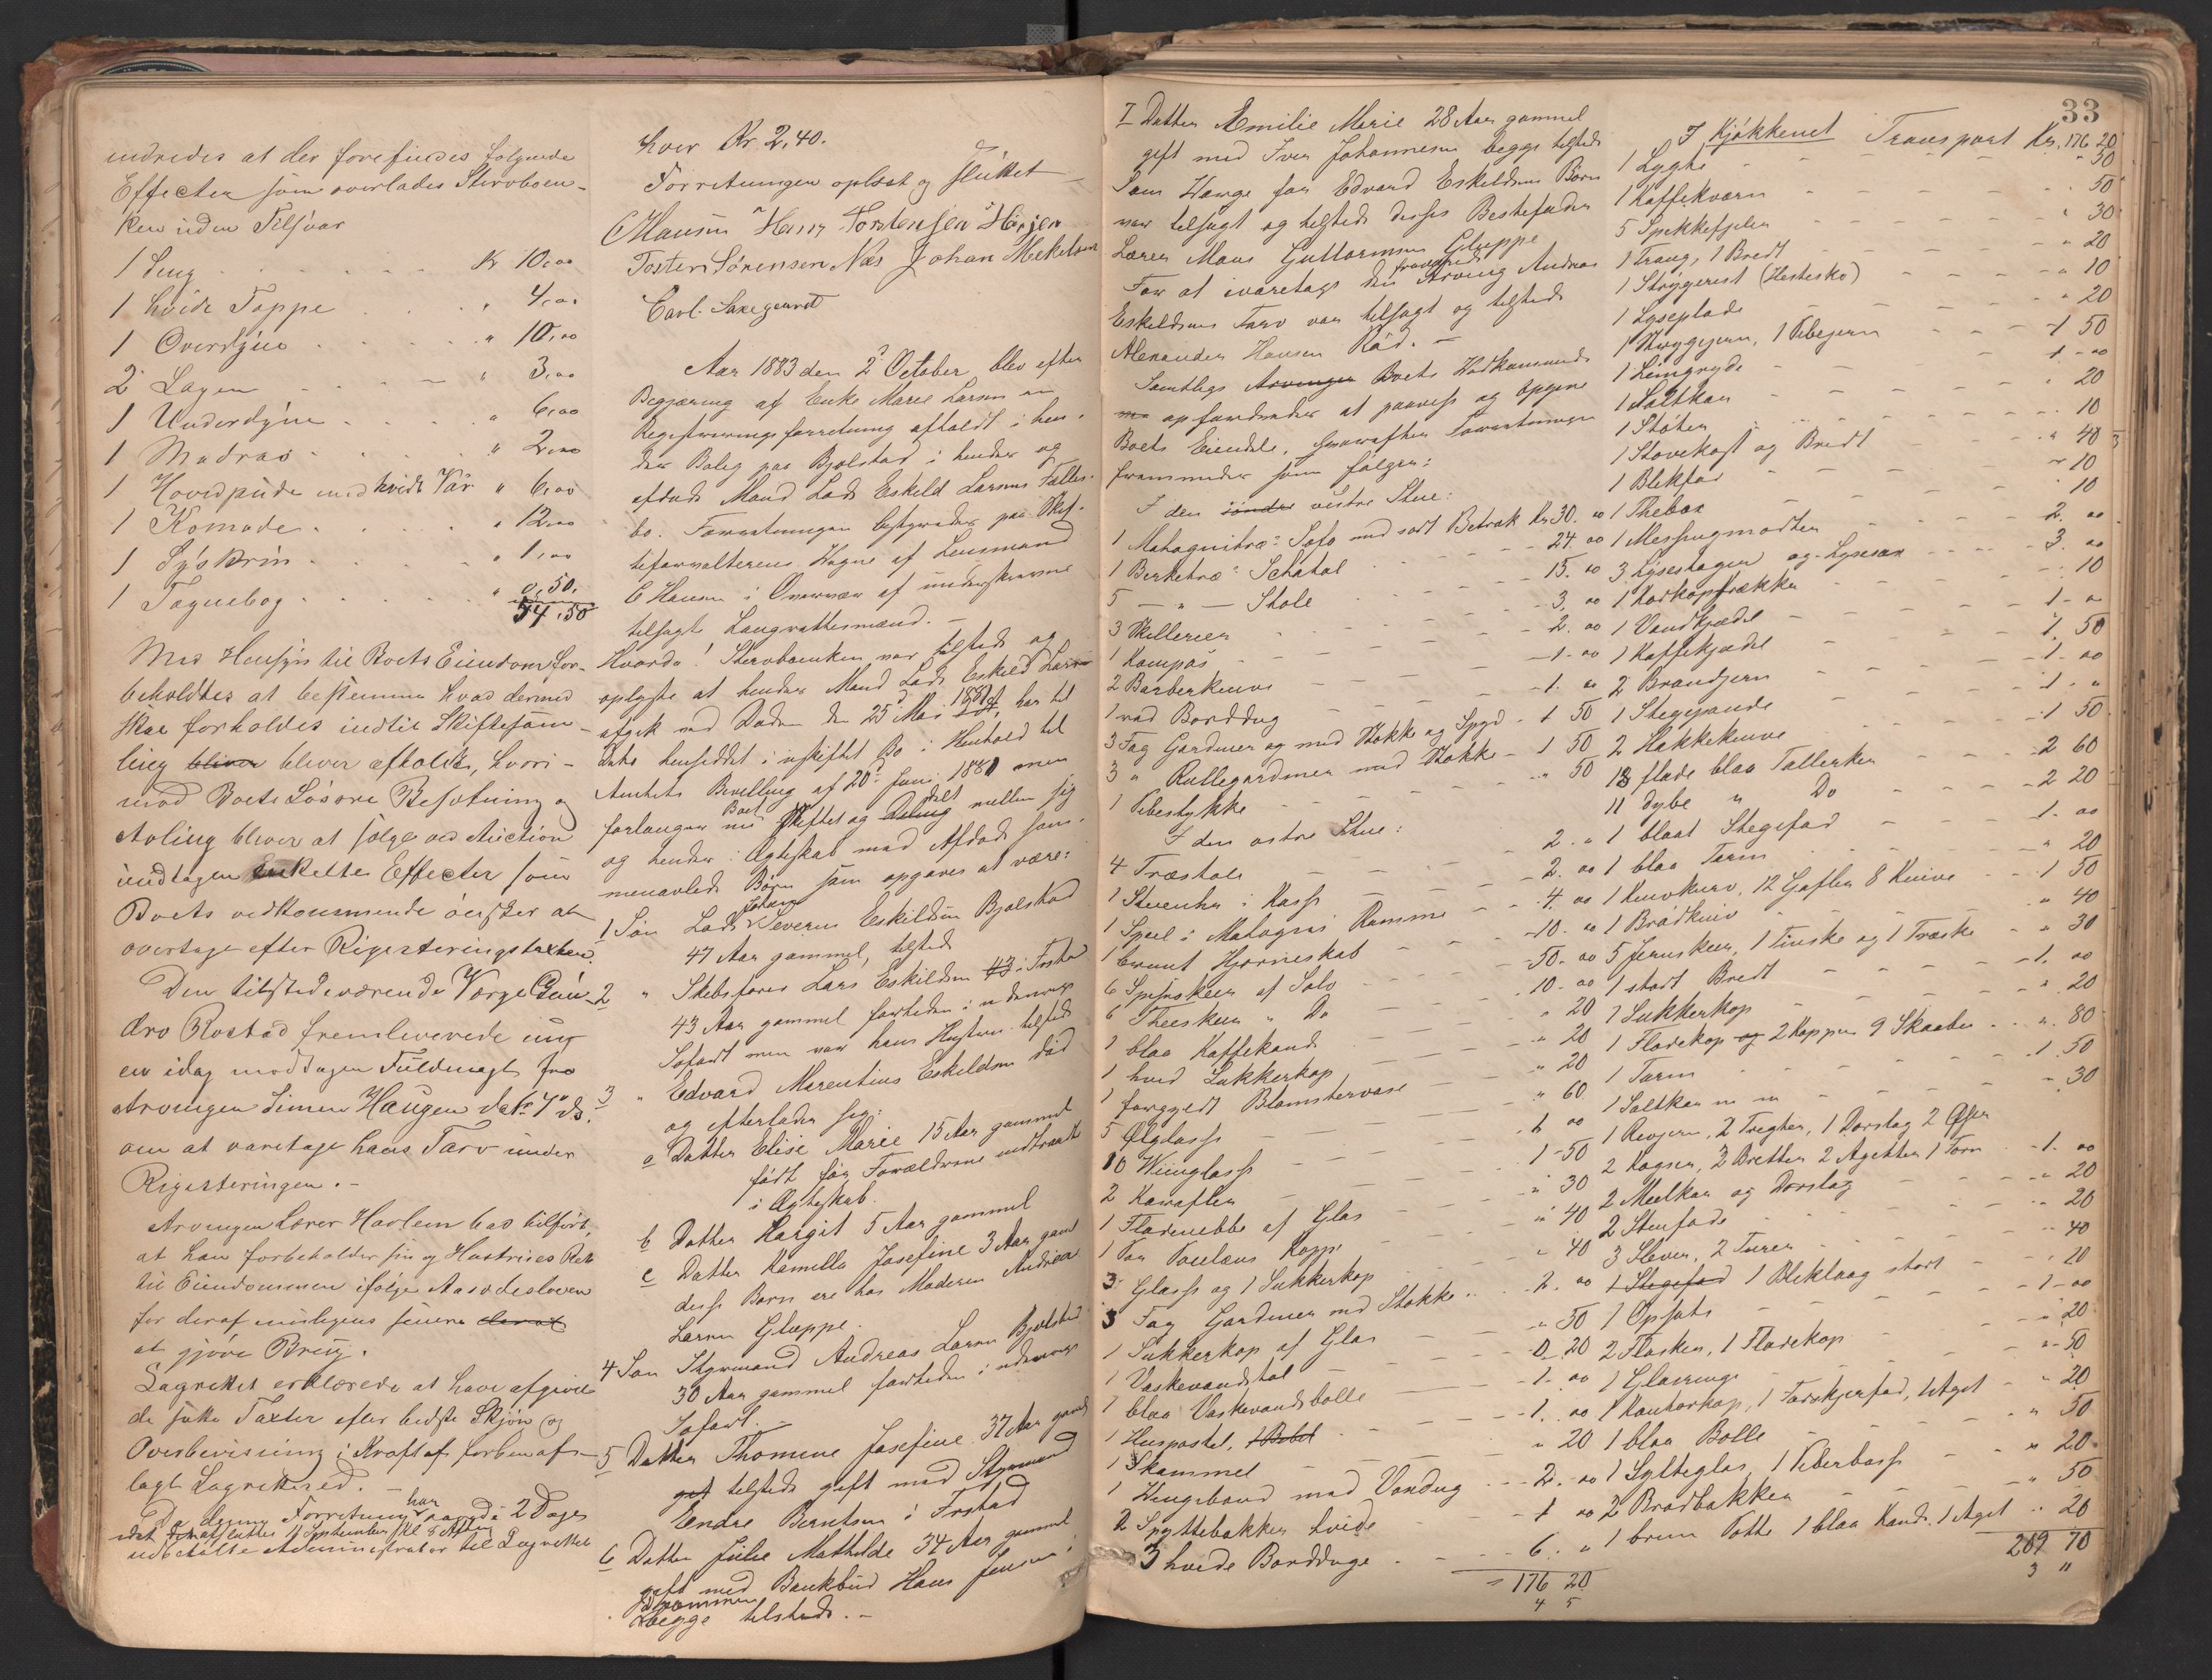 indredes at der forefindes følgende
Effecter som overlades Stervboen-
ken uden Tilsvar
1 Seng Kr 10,00
1 hvide Teppe " 4,00
1 Overdyne " 10,00
2 Lagen " 3,00
1 Underdyne " 6,00
1 Madras " 2,00
1 Hovedpude med hvide Vår " 6,00
1 Komode " 12,00
1 Syskrin " 1,00
1 Tognebog " 0,50
54,50
Med Hensyn til Boets Eiendom for-
beholdtes at bestemme hvad dermed
skal forholdes indtil Skiftesam-
ling bliver bliver afholdt, hvori-
mod Boets Løsøre Besætning og
Avling bliver at sælge ved Auction
undtagen enkelte Effecter som
Boets vedkommende ønsker at
overtage efter Registeringstaxten.
Den tilstedeværende Værge Gun-
dro Rostad fremleverede ung
en idag modtagen Fuldmagt fra
Arvingen Simen Haugen dat. 4de ds.
om at varetage hans Tarv under
Registeringen.-
Arvingen Lærer Harlem bad tilført,
at han forbeholder sin og Hustrues Ret
til Eiendommen ifølge Aasædesloven
for deraf muligens senere deraf
at gjøre Brug.
Lagrettet erklærede at have afgivet
de satte Taxter efter bedste Skjøn og
Overbevisning i Kraft af forhen af-
lagt Lagrettesed.
Da denne Forretning har varede 2 Dage
idet den afsluttes 4 September Kl 5 Aften
udbetalte Administrator til Lagrettet
hver Kr 2,40.
Forretningen oplæst og sluttet
CHansen Hans Torstensen Hørsen
Tosten Sörensen Næs Johan Mekelsen
Carl. Saxegaard
Aar 1883 den 2 October, blev efter
Begjæring af Enke Marie Larsen en
Registreringsforretning afholdt i hen-
des Bolig paa Bjolstad i hendes og
afdøde Mand Lods Eskild Larsens Fælles-
bo. Forretningen bestyredes paa Skif-
teforvalterens Vegne af Lensmand
C Hansen i Overvær af underskrevne
tilsagte Laugrettesmænd.-
Hvorda! Stervboenken var tilstede og
oplyste at hendes Mand Lods Eskild Larsen
afgik ved Døden den 25 Mai 1881, har til
Dato hensiddet i uskiftet Bo i Henhold til
Amtets Bevilling af 20de Juni 1881 men
forlanger nu Boet skiftet og delt Deling mellem sig
og hendes i Ægteskab med Afdøde sam-
menavlede Børn som opgaves at være:
1 Søn Lods Johan Severin Eskildsen Bjolstad
47 Aar gammel, tilstede
2 " Skibsfører Lars Eskildsen 43 i Fr.stad
43 Aar gammel fortiden i udenrigs
Søfart men var hans Hustru tilstede
3 " Edvard Marentius Eskildsen død
og efterlader sig:
a Datter Elise Marie 15 Aar gammel
født før Forældrene indtraadte
i Ægteskab.
b Datter Hargit 5 Aar gammel
c Datter Kamilla Josefine 3 Aar gaml
disse Børn ere hos Moderen Andrea
Larsen Glæppe.
4 Søn Styrmand Andreas Larsen Bjolstad
30 Aar gammel fortiden i udenrigs
Søfart.-
5 Datter Thomine Josefine 37 Aar gaml
gift tilstede gift med Styrmand
Endre Berntsen i Fr.stad
6 Datter Julie Mathilde 34 Aar gammel
gift med Bankbud Hans Jensen i
Drammen
begge tilstede.-
7 Datter Emilie Marie 28 Aar gammel
gift med Iver Johannesen begge tilstede
Som Værge for Edvard Eskildsens Børn
var tilsagt og tilstede disses Bestefader
Lærer Mons Guttormsen Glæppe
For at ivaretage den fraværende Arving Andreas
Eskildsens Tarv var tilsagt og tilstede
Alexander Hansen Rød.-
Samtlige Arvinger Boets Vedkommende
opfordredes at paavise og opgive
Boets Eiendele, hvorefter Forretningen
fremmedes som følger:
I den søndre vestre Stue:
1 Mahognitræ: Sofa med sort Betræk Kr 30. 00
1 Birketræ: Schatol 24 00
5 — " — Stole 15. 00
3 Skillerier 3. 00
1 Kompas 2. 00
2 Barberknive 1. 00
1 rød Borddug 1. 00
3 Fag Gardiner og med Stokke og Spyd 1 50
3 " Rullegardiner med Stokke 1 50
1 Pibestykke " 50
I den østre Stue:
4 Træstole 2. "
1 Stueuhr i Kasse 2. 00
1 Speil i Mahogni Ramme 4. 00
1 brunt Hjørneskab 10. 00
6 Spiseskeer af Sølv 50. 00
6 Theeskeer " Do 10. 00
1 blaa Kaffekande " 20
1 hvid Sukkerkop " 20
1 forgyldt Blomstervase " 20
5 Ølglasse " 60
10 Viinglasse 1 00
2 Karafler 1 50
1 Flødenebbe af Glas " 30
1 Par Poulans Kopper " 40
3 Glasse og 1 Sukkerkop " 40
3 Fag Gardiner med Stokke 2. 00
1 Sukkerkop af Glas " 50
1 Vaskevandstol 0. 20
1 blaa Vaskevandsbolle 1. 00
1 Huspostil, 1 Bibel 1. 00
1 Skammel " 20
1 Hengebord med Voxdug 2. 00
2 Spyttebakker hvide 1 00
3 hvide Bordduge 6. "
= 176 20
4 5
33
I Kjøkkenet Transport Kr. 176 20
1 Lygte " 50
1 Kaffekværn " 50
5 Spekkefjeler " 30
1 Traug, 1 Bredt " 20
1 Strygerist (Hestesko) " 10
1 Lyseplade " 20
1 Strygejern, 1 Vibejern 1 50
1 Liimgryde 1 - 00
1 Saltkar " 20
1 Støter " 10
1 Stovekost og Bredt " 40
1 Blikfad " 10
1 Thebox " 10
1 Messingmorter 2. 00
3 Lysestager og Lysesax 3. 00
1 Korkoptrækker " 10
1 Vandkjedel 1 - "
1 Kaffekjedel 1. 50
2 Brandjern 1. 00
1 Stegepande 1. "
2 Hakkeknive 1 50
18 flade blaa Tallerker 2 60
11 dybe " Do 2 20
1 blaat Stegefad 1. 00
1 blaa Terin " 20
1 Knivkurv, 12 Gafler 8 Knive 1 50
1 Brødkniv " 40
5 Jernskeer, 1 Tinske og 1 Træske " 30
1 stort Bredt 1. 00
1 Sukkerkop " 20
1 Flødekop og 2 Kopper 9 Skaaler " 80
1 Terin 1. 50
1 Saltkar m m " 30
1 Rivjern, 2 Tregter, 1 Dorslag 2 Øser
2 Kagser, 2 Bretter 2 Agetter 1 Form 1. 00
2 Meelkar og Dorslag " 20
2 Stenfade " 20
3 Slever, 2 Turer " 40
1 Stegefad 1 Bliklaag stort " 10
1 Opsats 1 - 00
2 Flasker, 1 Flødekop " 20
1 Glasringe " 50
1 Kontorkop, 1 Forskjærfad, 1 Aget " 20
1 blaa Bolle " 50
1 Sylteglas, 1 Peberbøsse " 20
2 Brødbakker " 50
1 brun Potte 1 blaa Kande. 1 Aget " 20
209 70
3 "